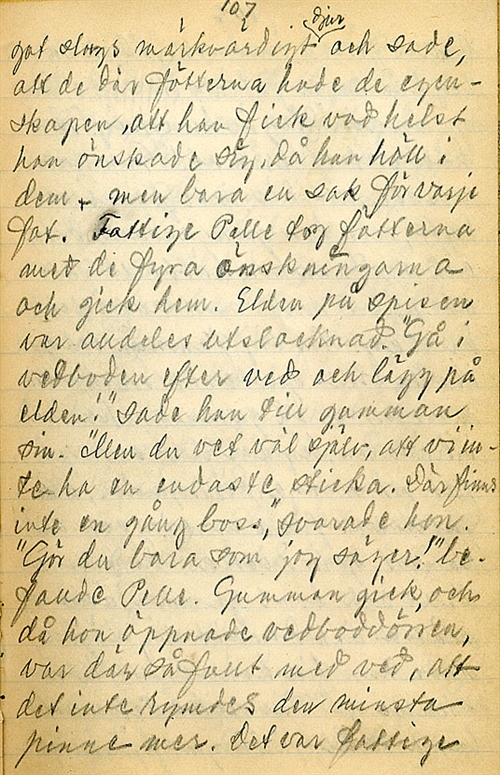 107
djur
got slags märkvärdigt och sade,
att de där fötterna hade de egen-
skapen, att han fick vad helst
han önskade sig, då han höll i
dem, men bara en sak för varje
fot. Fattige Pelle tog fötterna
med de fyra önskningarna
och gick hem. Elden på spisen
var alldeles utslocknad. "Gå i
vedboden efter ved och lägg på
elden!" sade han till gumman
sin. "Men du vet väl själv, att vi in-
te ha en endaste sticka. Där finns
inte en gång boss," svarade hon.
"Gör du bara som jag säger!" be-
fallde Pelle. Gumman gick, och
då hon öppnade vedboddörren,
var där så fullt med ved, att
det inte rymdes den minsta
pinne mer. Det var fattige